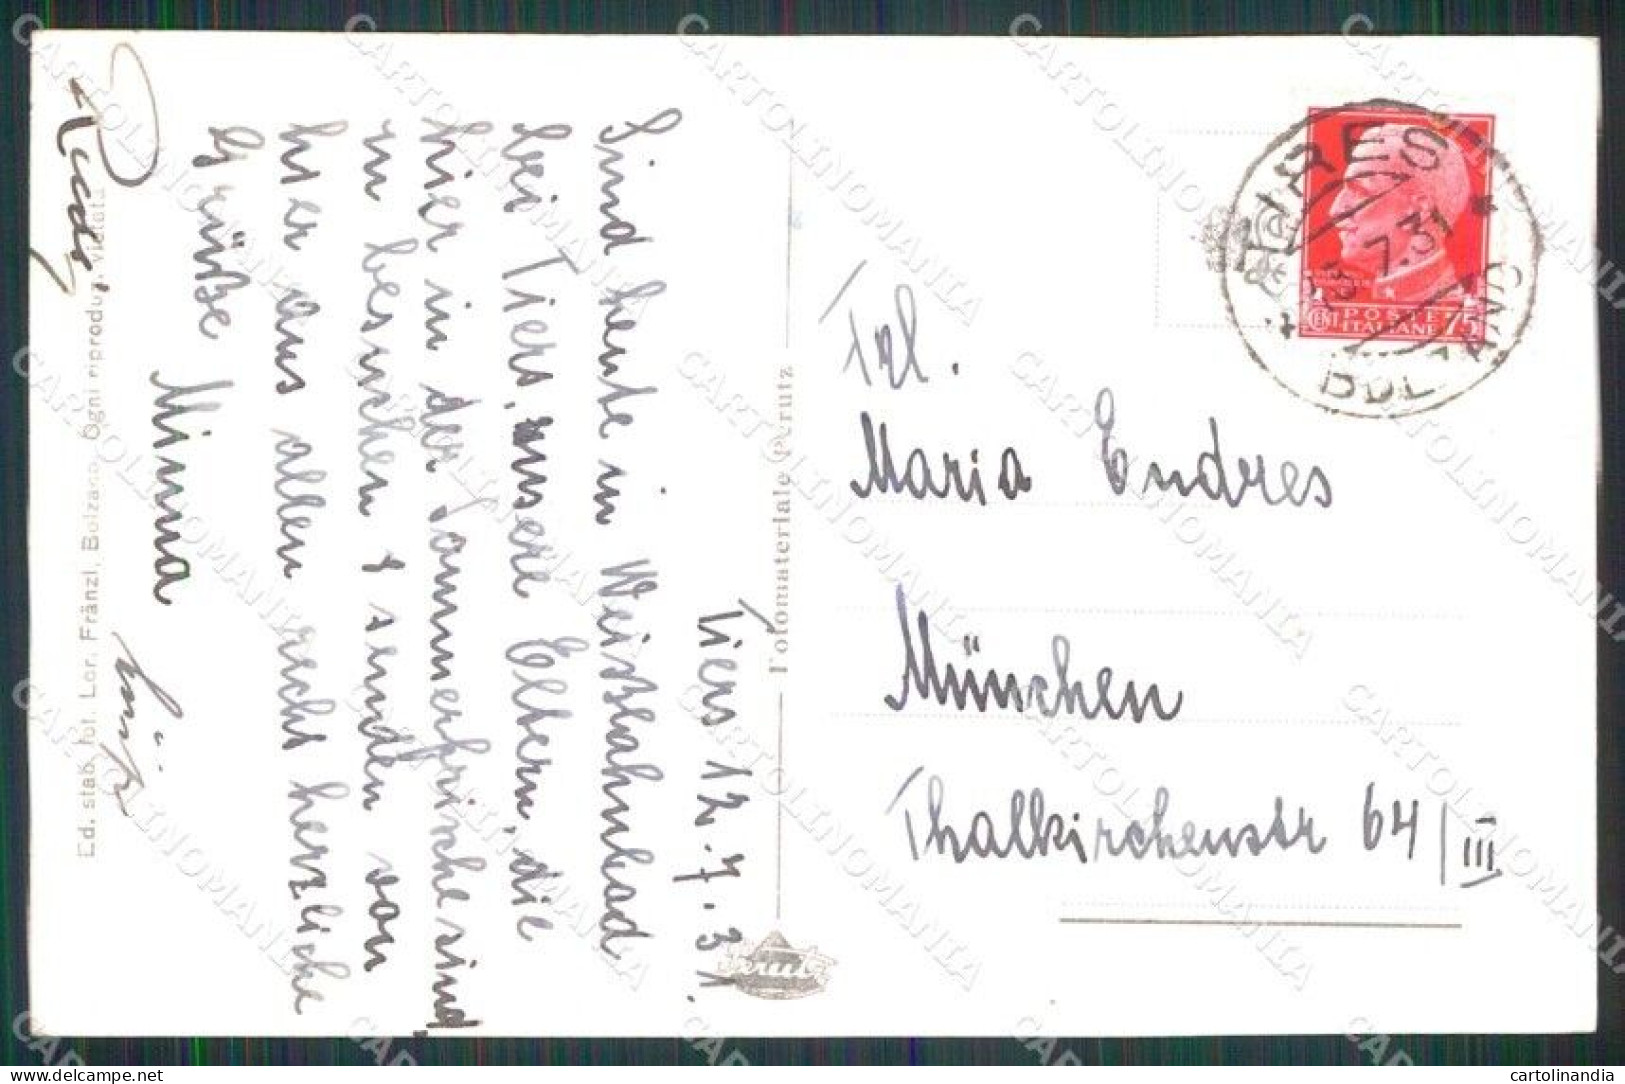 Tiers 12.7.31.
Sind heute in Weißlahnbad
bei Tiers, unsere Eltern, die
hier in der Sommerfrische sind,
zu besuchen & senden von
hier aus allen recht herzliche
Grüße
Minna
Frl.
Maria Endres
München
Thalkirchenstr 64/III
TIRES
7.31
BOLZANO
POSTE
ITALIANE
CENT 75
Fotomateriale Perutz
Perutz
Ed. stab. fot. Lor. Fränzl, Bolzano. Ogni riproduz. vietata
CARTOLINOMANIA
cartolinandia